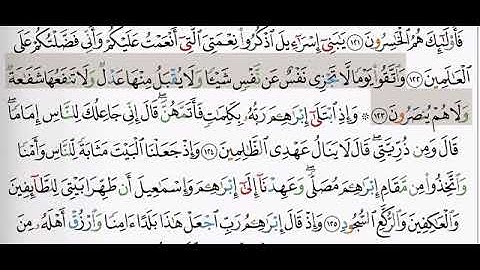 فَأُو۟لَٰٓئِكَ هُمُ ٱلْخَٰسِرُونَ ١٢١ يَٰبَنِىٓ إِسْرَٰٓءِيلَ ٱذْكُرُوا۟ نِعْمَتِىَ ٱلَّتِىٓ أَنْعَمْتُ عَلَيْكُمْ وَأَنِّى فَضَّلْتُكُمْ عَلَى
ٱلْعَٰلَمِينَ ١٢٢ وَٱتَّقُوا۟ يَوْمًا لَّا تَجْزِى نَفْسٌ عَن نَّفْسٍ شَيْـًٔا وَلَا يُقْبَلُ مِنْهَا عَدْلٌ وَلَا تَنفَعُهَا شَفَٰعَةٌ
وَلَا هُمْ يُنصَرُونَ ١٢٣ ۞ وَإِذِ ٱبْتَلَىٰٓ إِبْرَٰهِـۧمَ رَبُّهُۥ بِكَلِمَٰتٍ فَأَتَمَّهُنَّ ۖ قَالَ إِنِّى جَاعِلُكَ لِلنَّاسِ إِمَامًا ۖ
قَالَ وَمِن ذُرِّيَّتِى ۖ قَالَ لَا يَنَالُ عَهْدِى ٱلظَّٰلِمِينَ ١٢٤ وَإِذْ جَعَلْنَا ٱلْبَيْتَ مَثَابَةً لِّلنَّاسِ وَأَمْنًا
وَٱتَّخِذُوا۟ مِن مَّقَامِ إِبْرَٰهِـۧمَ مُصَلًّى ۖ وَعَهِدْنَآ إِلَىٰٓ إِبْرَٰهِـۧمَ وَإِسْمَٰعِيلَ أَن طَهِّرَا بَيْتِىَ لِلطَّآئِفِينَ
وَٱلْعَٰكِفِينَ وَٱلرُّكَّعِ ٱلسُّجُودِ ١٢٥ وَإِذْ قَالَ إِبْرَٰهِـۧمُ رَبِّ ٱجْعَلْ هَٰذَا بَلَدًا ءَامِنًا وَٱرْزُقْ أَهْلَهُۥ مِنَ